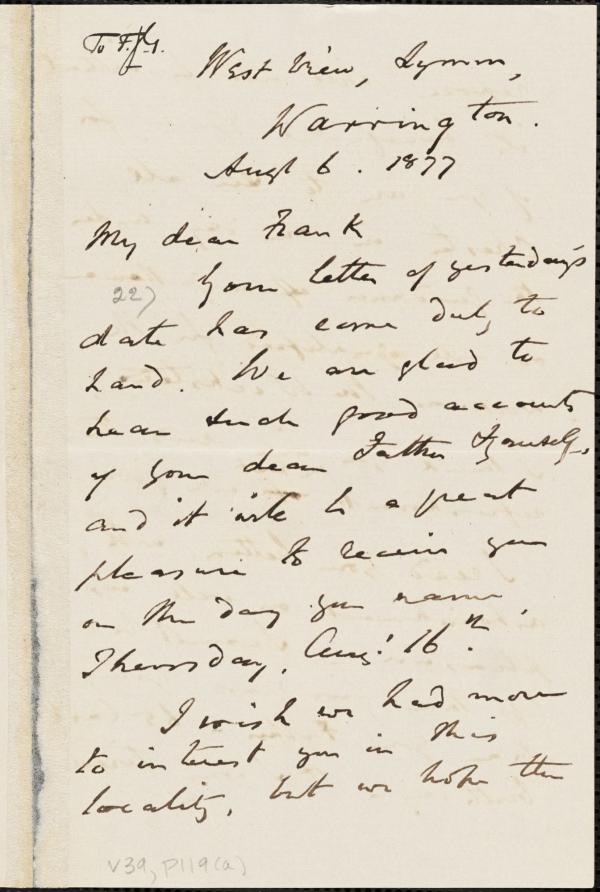 To F.J.G.
West View, Lymm,
Warrington.
Augt 6. 1877
My dear Frank
22)
Your letter of yesterday's
date has come duly to
hand. We are glad to
hear such good accounts
of your dear Father & yourself,
and it will be a great
pleasure to receive you
on the day you name,
Thursday, Augt 16th.
I wish we had more
to interest you in this
locality, but we hope the
V39, P119(a)